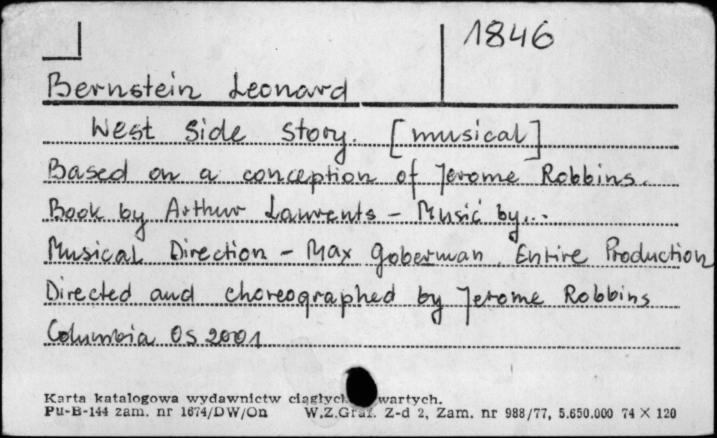 1846
Bernstein Leonard
West Side Story. [musical]
Based on a conception of Jerome Robbins.
Book by Arthur Laurents - Music by...
Musical Direction - Max Goberman. Entire Production
Directed and choreographed by Jerome Robbins
Columbia OS 2001
Karta katalogowa wydawnictw wartych.
Pu-B-144 zam. nr 1674/DW/On W.Z.Graf. Z-d 2, Zam. nr 988/77, 5.650.000 74 × 120